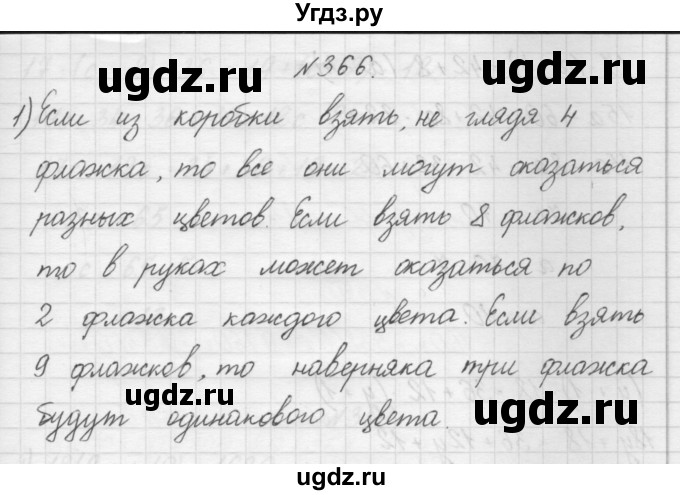 Угдз.ру
ugdz.ru ugdz.ru
№366.
1) Если из коробки взять, не глядя 4
ugdz.ru ugdz.ru
флажка, то все они могут оказаться
разных цветов. Если взять 8 флажков,
ugdz.ru ugdz.ru
то в руках может оказаться по
2 флажка каждого цвета. Если взять
ugdz.ru
9 флажков, то наверняка три флажка
ugdz.ru ugdz.ru
будут одинакового цвета
ugdz.ru